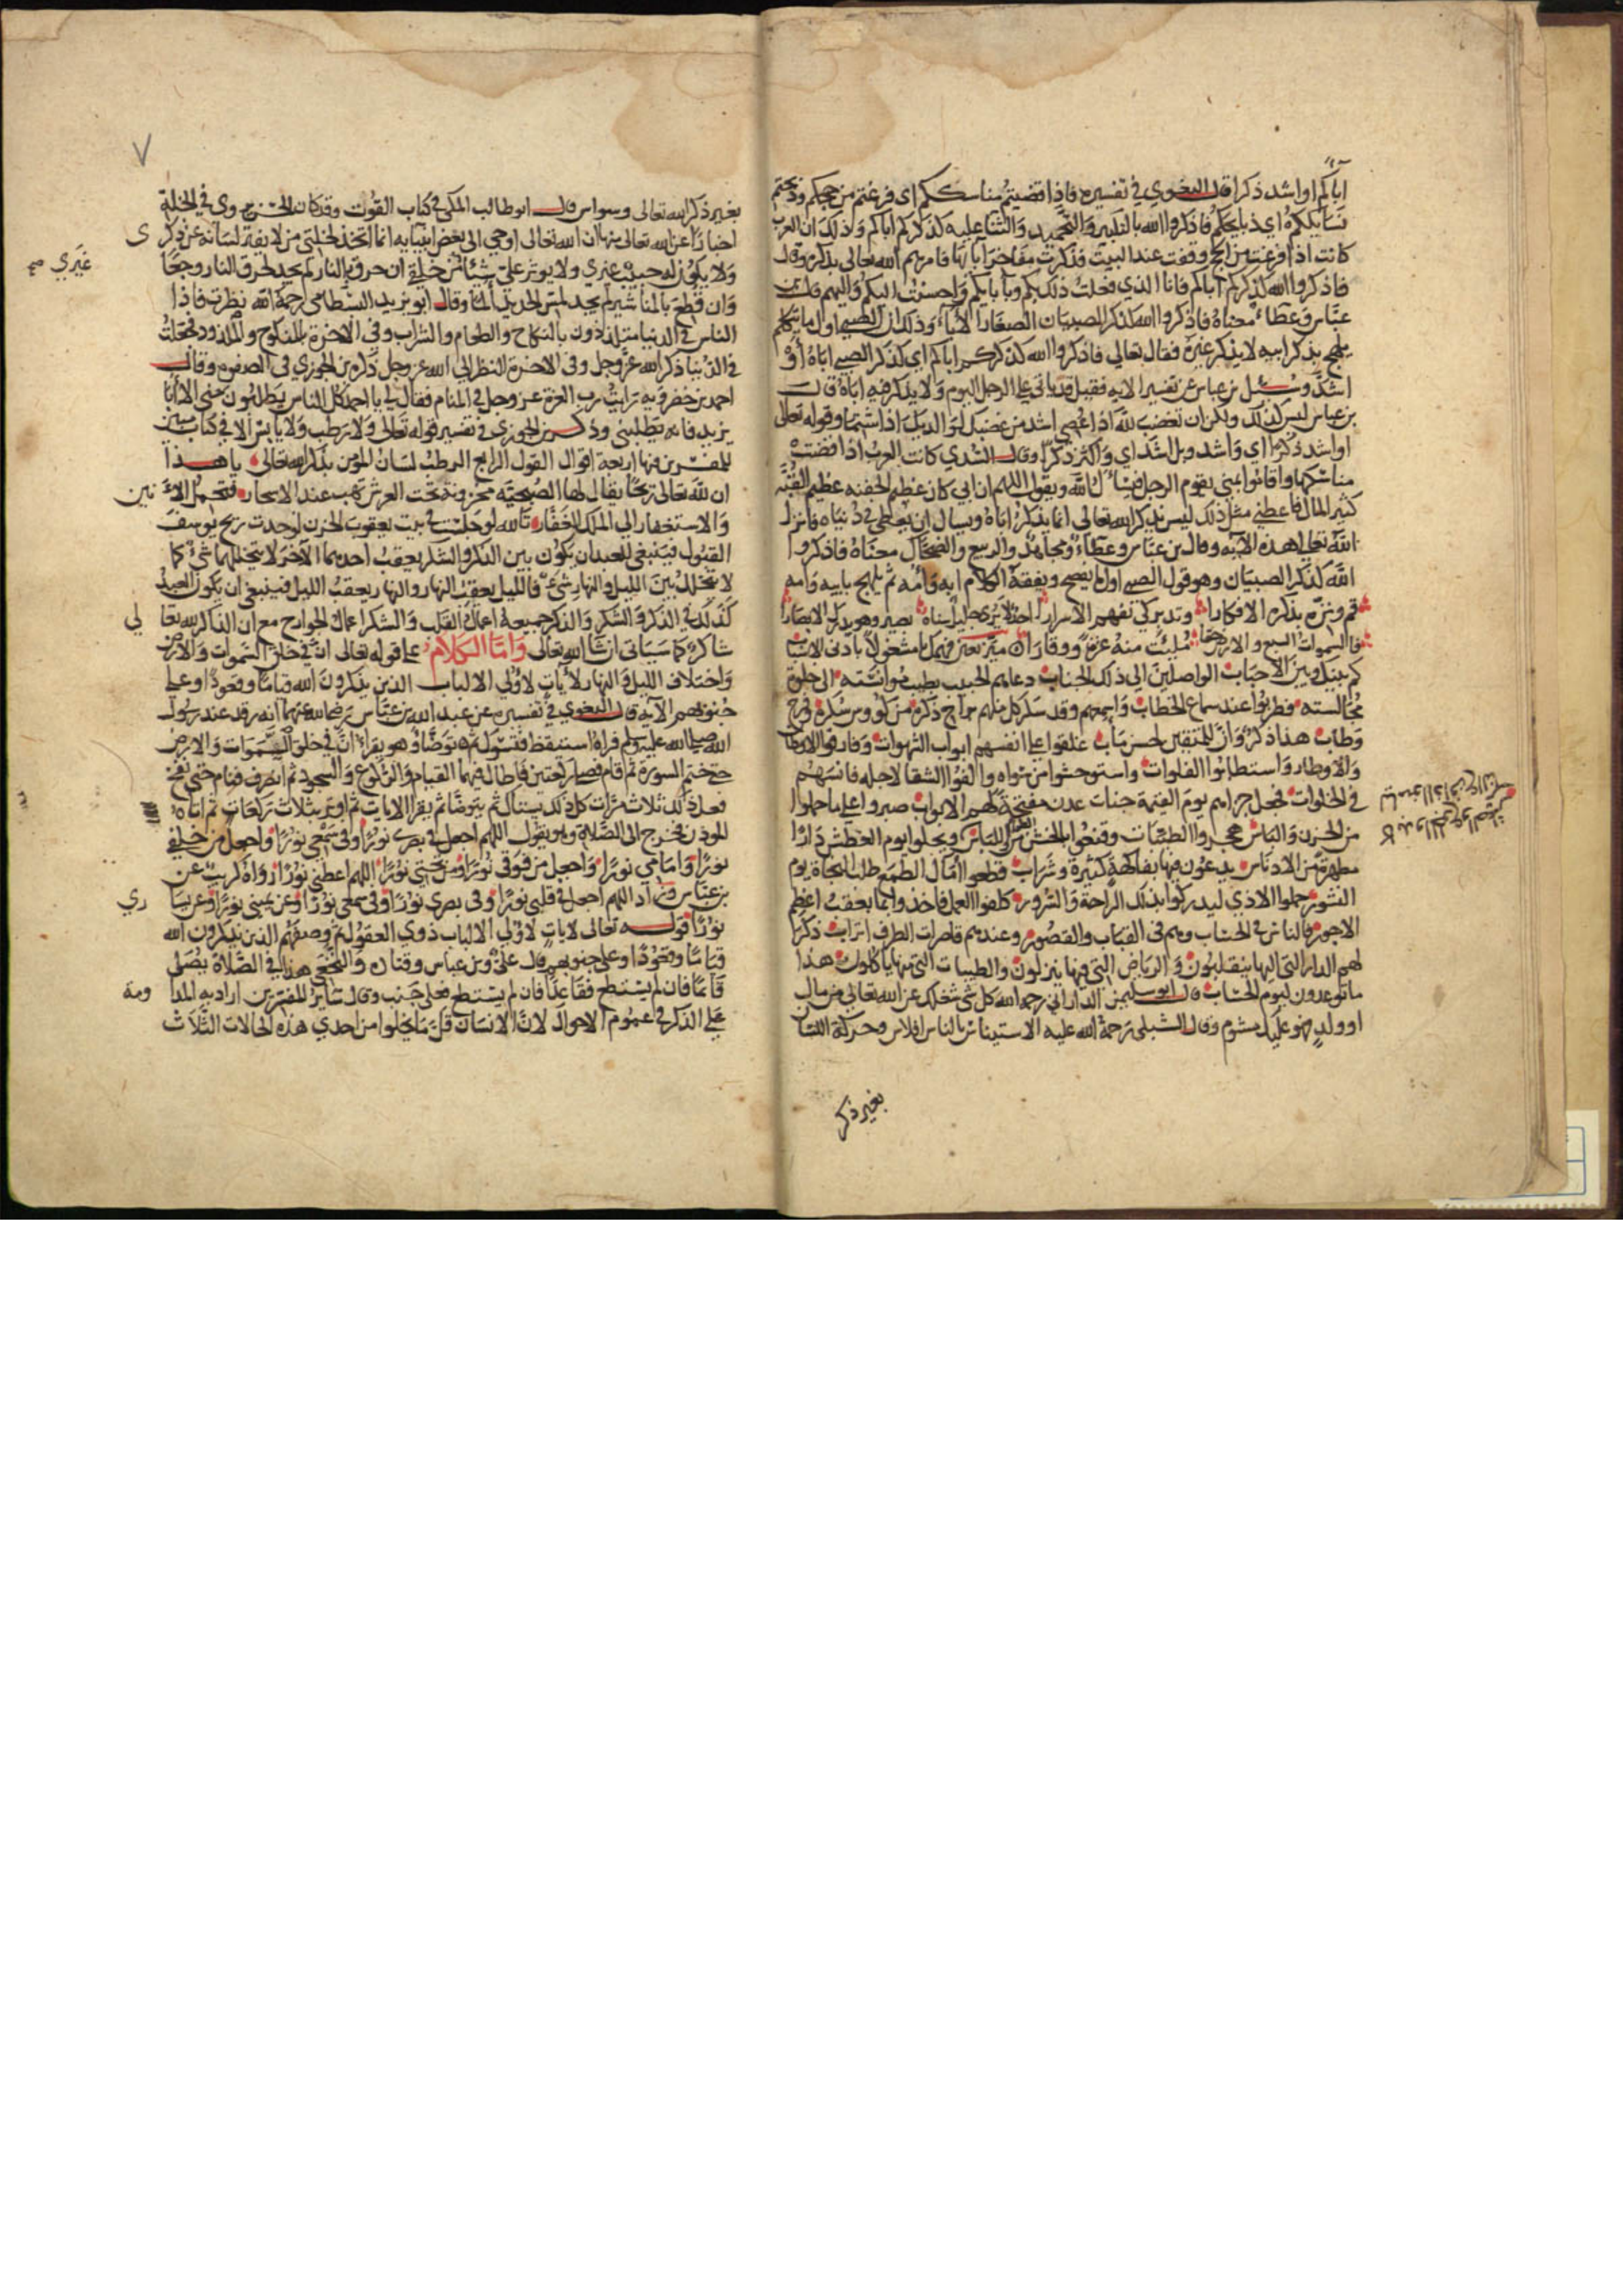 اباكم او اشد ذكرا قال البغوي في تفسيره فاذا قضيتم مناسككم اى فرغتم من حجكم وذبحتم
نسائككم اي ذبايحكم فاذكروا الله بالتكبير والتحميد والثناء عليه كذكركم اباكم وذلك ان العرب
كانت اذا فرغت من الحج وقفت عند البيت فذكرت مفاخر ابائها فامرهم الله تعالى بذكره وقال
فاذكروا الله كذكركم اباكم فانا الذي فعلت ذلك بكم وبابايكم واحسنت اليكم واليهم قال بن
عباس وعطاء معناه فاذكروا الله كذكر الصبيان الصغار الاباء وذلك ان الصبي اول ما يتكلم
يلهج بذكر ابيه لا يذكر غيره فقال تعالى فاذكروا الله كذكركم اباكم اي كذكر الصبي اباه او
اشد وسئل بن عباس عن تفسير الايه فقيل قد ياتي على الرجل اليوم ولا يذكر فيه اباه قال
بن عباس ليس كذلك ولكن ان تغضب لله اذا عصي اشد من غضبك لوالديك اذا شتما وقوله تعالى
او اشد ذكرا اي واشد وبل اشد اي واكثر ذكرا وقال السدي كانت العرب اذا قضت
مناسكها واقاموا بمنى يقوم الرجل فيسأل الله ويقول اللهم ان ابي كان عظيم الجفنه عظيم القبه
كثير المال فاعطني مثل ذلك ليس يذكر الله تعالى انما يذكر اباه ويسال ان يعطى في دنياه فانزل
الله تعالى هذه الايه وقال بن عباس وعطاء ومجاهد والربيع والضحاك معناه فاذكروا
الله كذكر الصبيان وهو قول الصبي اول ما يفصح ويفقه الكلام ابه وامه ثم يلهج بابيه وامه
قم ونزه بذكره الافكارا وتدبر كي تفهم الاسرارا
فالسموات السبع والارض ملئت منه عزة ووقارا
كم بينك وبين الاحباب الواصلين الى ذلك الجناب دعاهم الحبيب بطيب موانسته الى خلوة
مجالسته فطربوا عند سماع الخطاب
وطاب هذا ذكر وان للمتقين لحسن مآب غلقوا على انفسهم ابواب الشهوات وفارقوا الاوطان
والاوطار واستطابوا الفلوات واستوحشوا من سواه والفوا الشقا لاجله فانسهم
في الخلوات فجعل جزاهم يوم القيمة جنات عدن مفتحة لهم الابواب صبروا على ما حملوا
من الحزن والباس هجروا الطيبات وقنعوا بالخشن من اللباس
مطهرة من الادناس يدعون فيها بفاكهة كثيرة وشراب قطعوا امال الطمع طلب النجاة يوم
النشور حملوا الاذي ليدركوا بذلك الراحة والسرور
الاجور فالناس في الحساب وهم في القباب والقصور وعندهم قاصرات الطرف اتراب
لهم الدار التي اليها ينقلبون والرياض التي فيها ينزلون والطيبات التي منها ياكلون هذا
ما توعدون ليوم الحساب قال ابو سليمن الداراني رحمه الله كل شي شغلك عن الله تعالى من مال
او ولد فهو عليك مشوم وقال الشبلي رحمة الله عليه الاستيناس بالناس افلاس وحركة اللسان
بغير ذكر
٧
بغير ذكر الله تعالى وسواس قال ابو طالب المكي في كتاب القوت
اخبارا عن الله تعالى ان الله تعالى اوحي الى بعض انبيايه انما اتخذ لخلتي من لا يفتر لسانه عن ذكرى
ولا يكون له حبيب غيري ولا يوثر علي شيئا من خلقي ان حرق بالنار لم يجد لحرق النار وجعا
غيري صح
وان قطع بالمناشير لم يجد لمس الحديد الما وقال ابو يزيد البسطامي رحمة الله نظرت فاذا
الناس في الدنيا متلذذون بالنكاح والطعام والشراب وفي الاخرة بالمنكوح والملذوذ فجعلت
في الدنيا ذكر الله عز وجل وفي الاخرة النظر الي الله عز وجل ذكره بن الجوزي في الصفوه وقال
احمد بن خضرويه رايت رب العزة عز وجل في المنام فقال لي يا احمد كل الناس يطلبون مني الا ابا
يزيد فانه يطلبني وذكر بن الجوزي في تفسير قوله تعالى ولا رطب ولا يابس الا في كتاب مبين
للمفسرين فيها اربعة اقوال القول الرابع الرطب لسان المومن بذكر الله تعالى يا هذا
ان لله تعالى ريحا يقال لها الصبحيه مخزونة تحت العرش تهب عند الاسحار فتحمل الانين
والاستغفار الى الملك الغفار تالله لو جلست في بيت يعقوب الحزن لوجدت ريح يوسف
القبول فينبغي للعبد ان يكون بين الذكر والشكر يعقب احدهما الاخر لا يتخللهما شيء كما
لا يتخلل بين الليل والنهار شيء فالليل يعقب النهار والنهار يعقب الليل فينبغي ان يكون العبد
كذلك في الذكر والشكر والذكر جميعه اعمال القلب والشكر اعمال الجوارح مع ان الذاكر لله تعالي
شاكر كما سياتى ان شاء الله تعالى واما الكلام على قوله تعالى ان في خلق السموات والارض
واختلاف الليل والنهار لايات لاولي الالباب الذين يذكرون الله قياما وقعودا وعلى
جنوبهم الايه قال البغوي في تفسيره عن عبد الله بن عباس رضي الله عنهما انه رقد عند رسول
الله صلى الله عليه وسلم فراه استيقظ فتسوك ثم توضأ وهو يقراء ان في خلق السموات والارض
حتى ختم السورة ثم قام فصلى ركعتين فاطال فيهما القيام والركوع والسجود ثم انصرف فنام حتى نفخ
فعل ذلك ثلاث مرات كل ذلك يستاك ثم يتوضا ثم يقرا الايات ثم اوتر بثلاث ركعات ثم اتاه
الموذن فخرج الى الصلاة وهو يقول اللهم اجعل في بصري نورا وفي سمعي نورا واجعل من خلفي
نورا وامامي نورا واجعل من فوقي نورا ومن تحتي نورا اللهم اعطني نورا ورواه كريب عن
بن عباس وزاد اللهم اجعل في قلبي نورا وفي بصري نورا وفي سمعي نورا وعن يميني نورا وعن يساري
نورا قوله تعالى لايات لاولي الالباب ذوي العقول ثم وصفهم الذين يذكرون الله
قياما وقعودا وعلى جنوبهم قال علي وبن عباس وقتاده والنخعي هذا في الصلاة يصلي
قائما فان لم يستطع فقاعدا فان لم يستطع فعلى جنب وقال سائر المفسرين اراد به المداومة
على الذكر في عموم الاحوال لان الانسان قل ما يخلوا من احدي هذه الحالات الثلاث